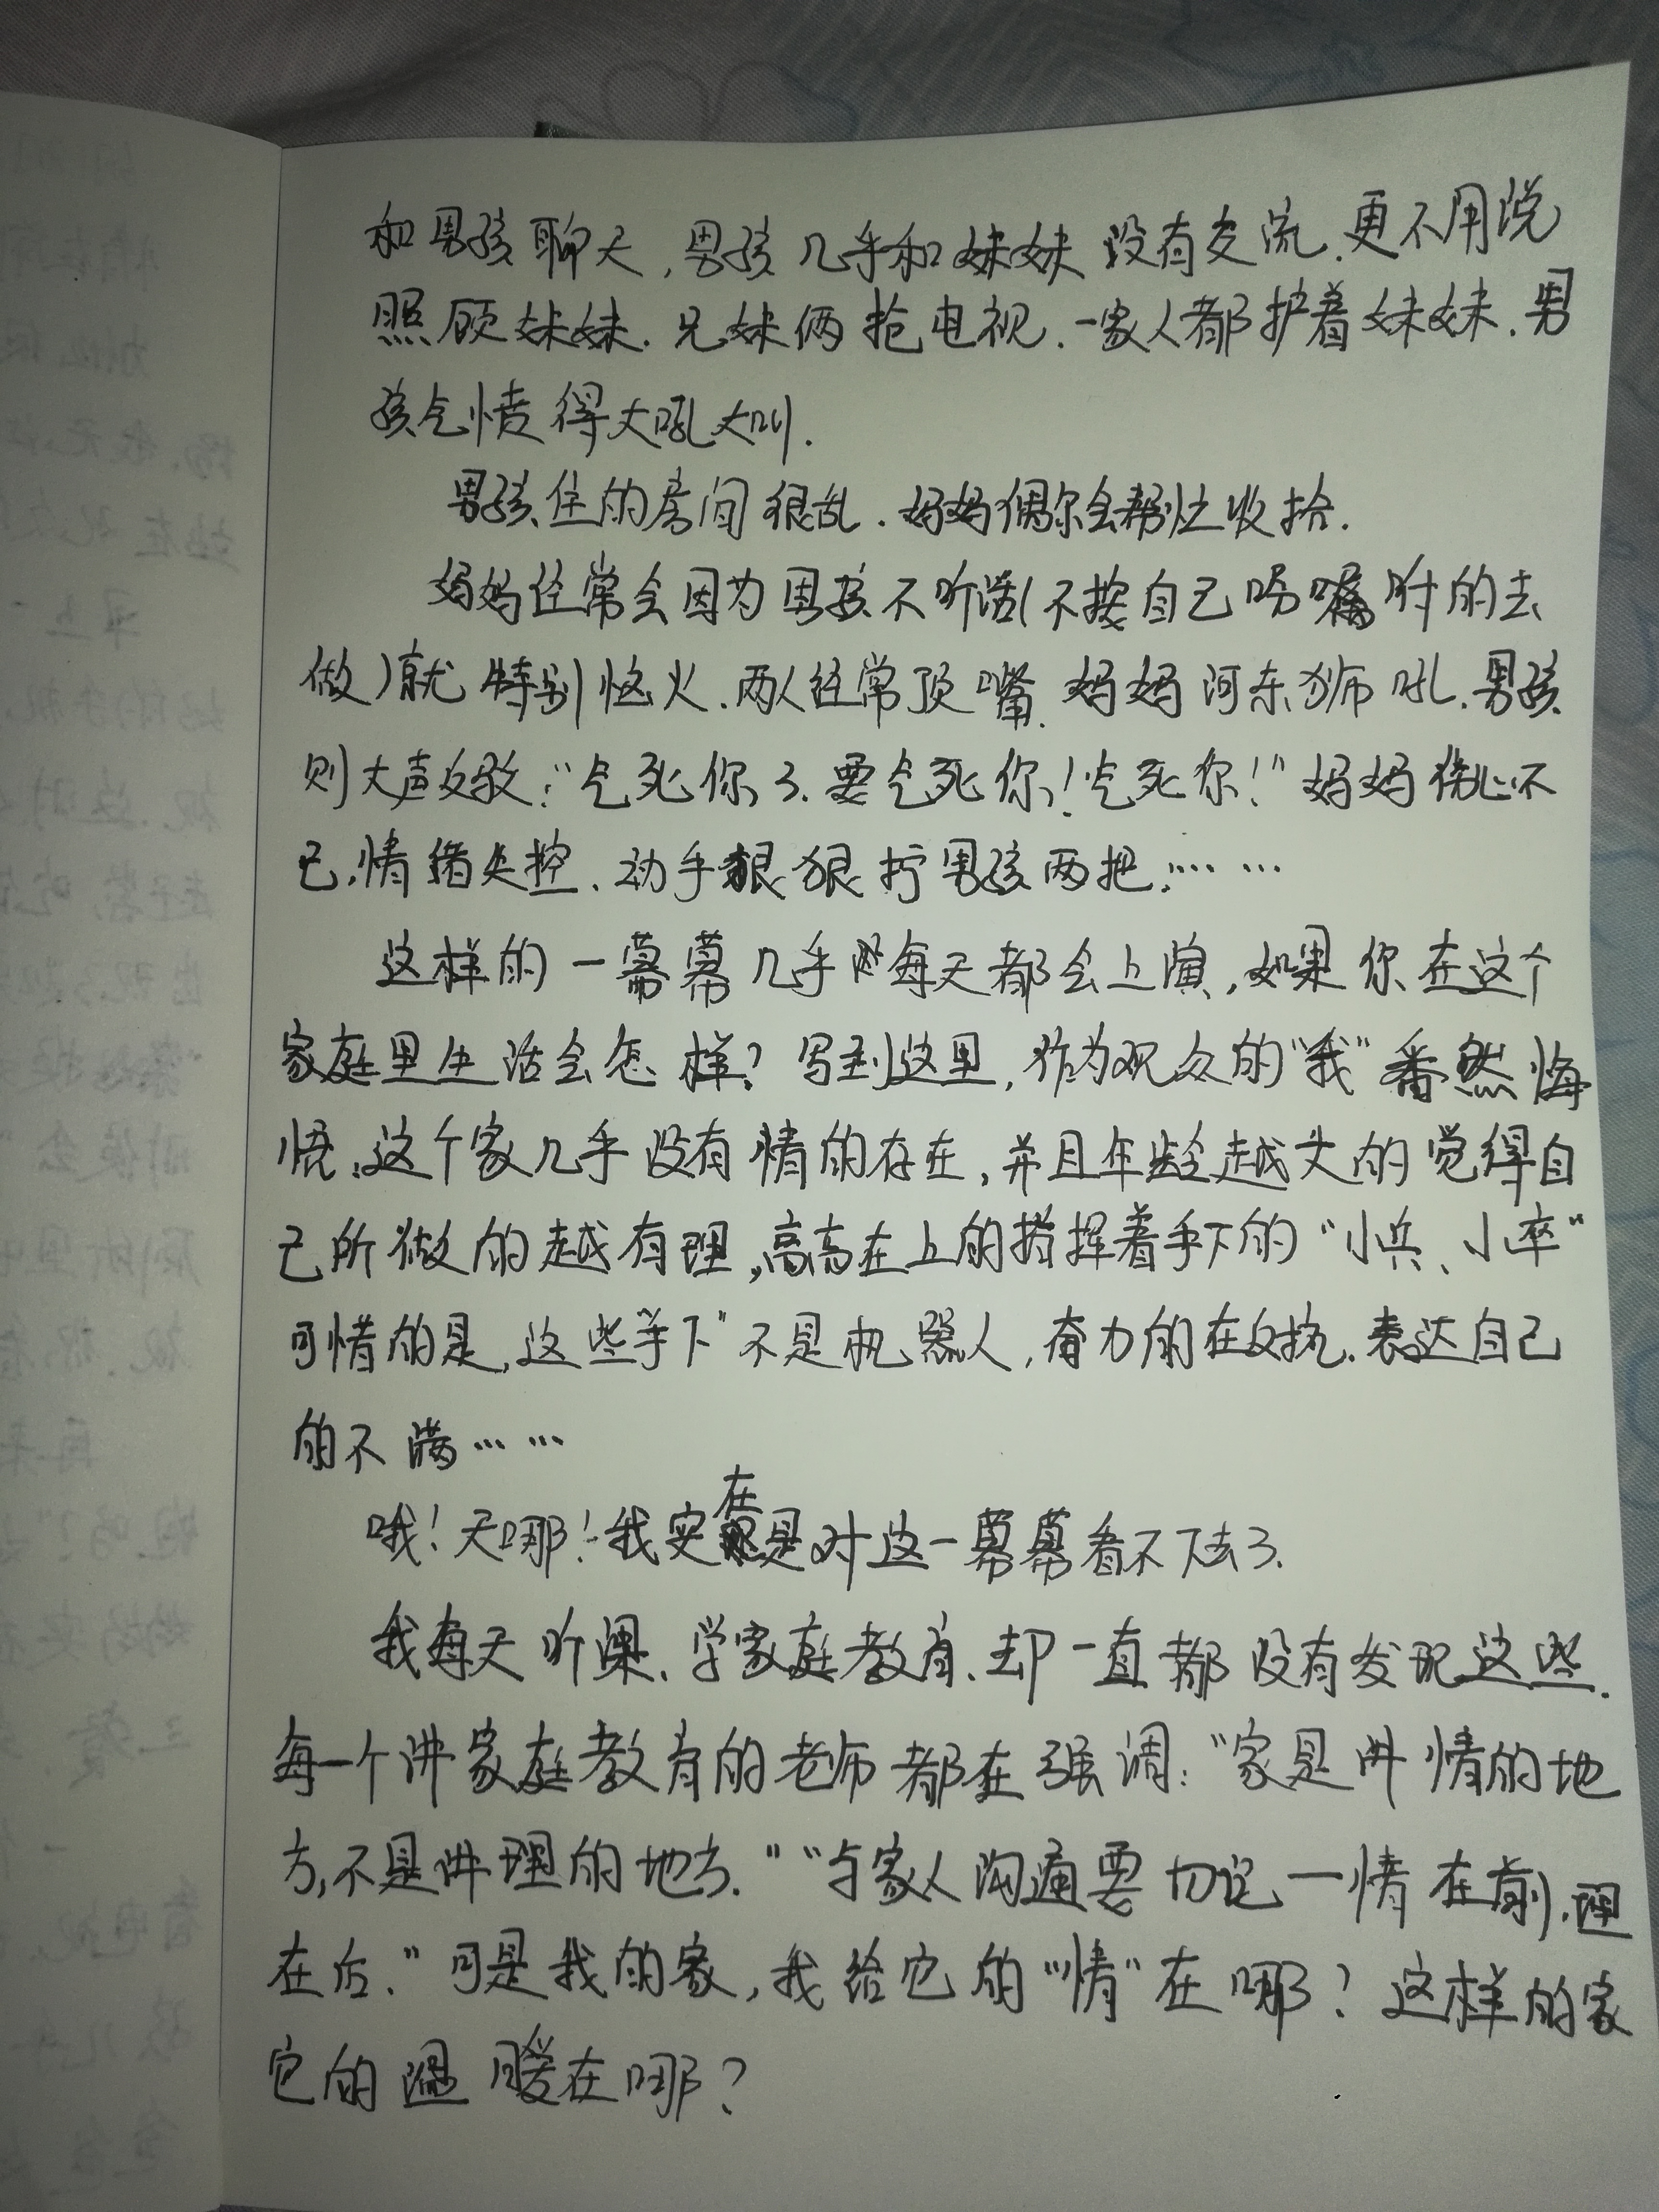 和男孩聊天,男孩几乎和妹妹没有交流.更不用说
照顾妹妹.兄妹俩抢电视.一家人都护着妹妹.男
孩气愤得大吼大叫.
男孩住的房间很乱.妈妈偶尔会帮忙收拾.
妈妈经常会因为男孩不听话(不按自己吩嘱咐的去
做)就特别恼火.两人经常顶嘴.妈妈河东狮吼.男孩
则大声反驳:"气死你了.要气死你!气死你!"妈妈伤心不
已,情绪失控.动手狠狠拧男孩两把.……
这样的一幕幕几乎每天都会上演,如果你在这个
家庭里生活会怎样?写到这里,作为观众的"我"番然悔
悟.这个家几乎没有情的存在,并且年龄越大的觉得自
己所做的越有理,高高在上的指挥着手下的"小兵、小卒"
可惜的是,这些"手下"不是机器人,奋力的在反抗.表达自己
的不满……
哦!天哪!我实在是对这一幕幕看不下去了.
我每天听课、学家庭教育、却一直都没有发现这些.
每一个讲家庭教育的老师都在强调:"家是讲情的地
方,不是讲理的地方.""与家人沟通要切记一情在前,理
在后."可是我的家,我给它的"情"在哪?这样的家
它的温暖在哪?